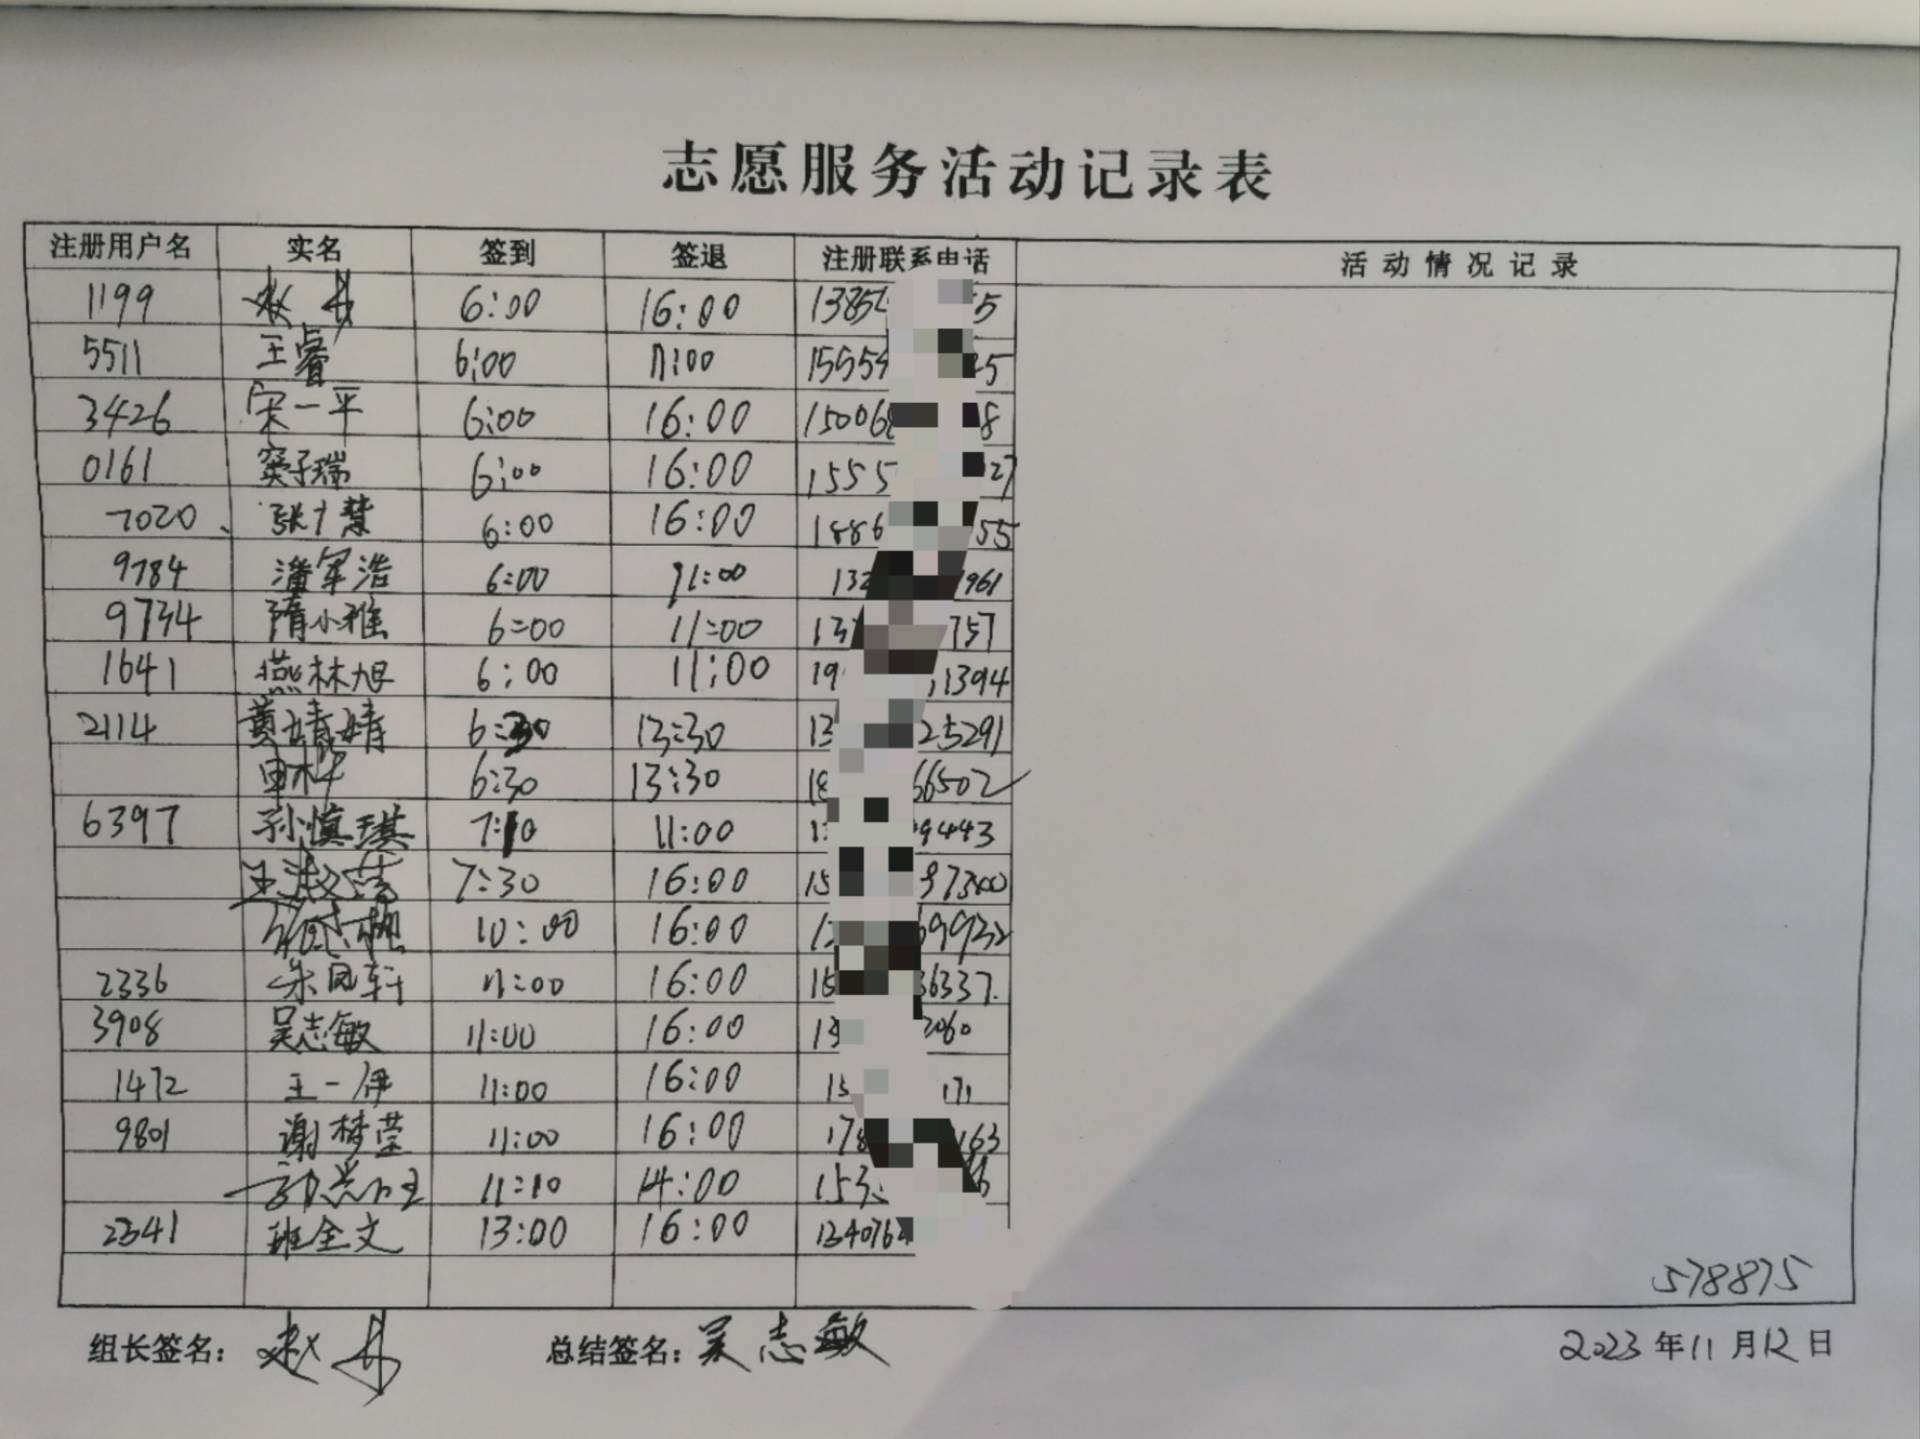 志愿服务活动记录表
注册用户名 实名 签到 签退 注册联系电话 活动情况记录
1199 6:00 16:00 1385 5
5511 王睿 6:00 11:00 15554 5
3426 宋一平 6:00 16:00 15006 8
0161 窦子瑞 6:00 16:00 1555 27
7020 6:00 16:00 1886 55
9784 潘军浩 6:00 11:00 132 1961
9734 隋小雅 6:00 11:00 13 757
1641 燕林旭 6:00 11:00 19 1394
2114 黄婧婧 6:30 13:30 13 25291
6:30 13:30 18 66502
6397 孙慎琪 7:10 11:00 1 9443
7:30 16:00 15 97300
10:00 16:00 69932
2336 朱凤轩 11:00 16:00 15 36337.
3908 吴志敏 11:00 16:00 13 2060
1472 王一伊 11:00 16:00 15 171
9801 谢梦莹 11:00 16:00 178 163
11:10 14:00 153 6
2341 班全文 13:00 16:00 134076
578875
组长签名: 总结签名: 吴志敏 2023年11月12日